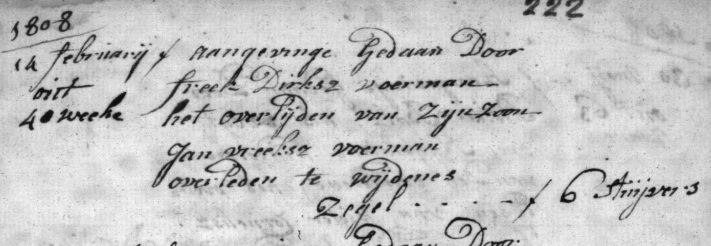 222
1808
14 februarij / aangevinge Gedaan Door
out freek Dirksz voerman
40 weeke het overlijden van zijn zoon
Jan vreeksz voerman
overleden te wijdenes
zegel - - - - - / 6 Stuijvers
Gedaan Door